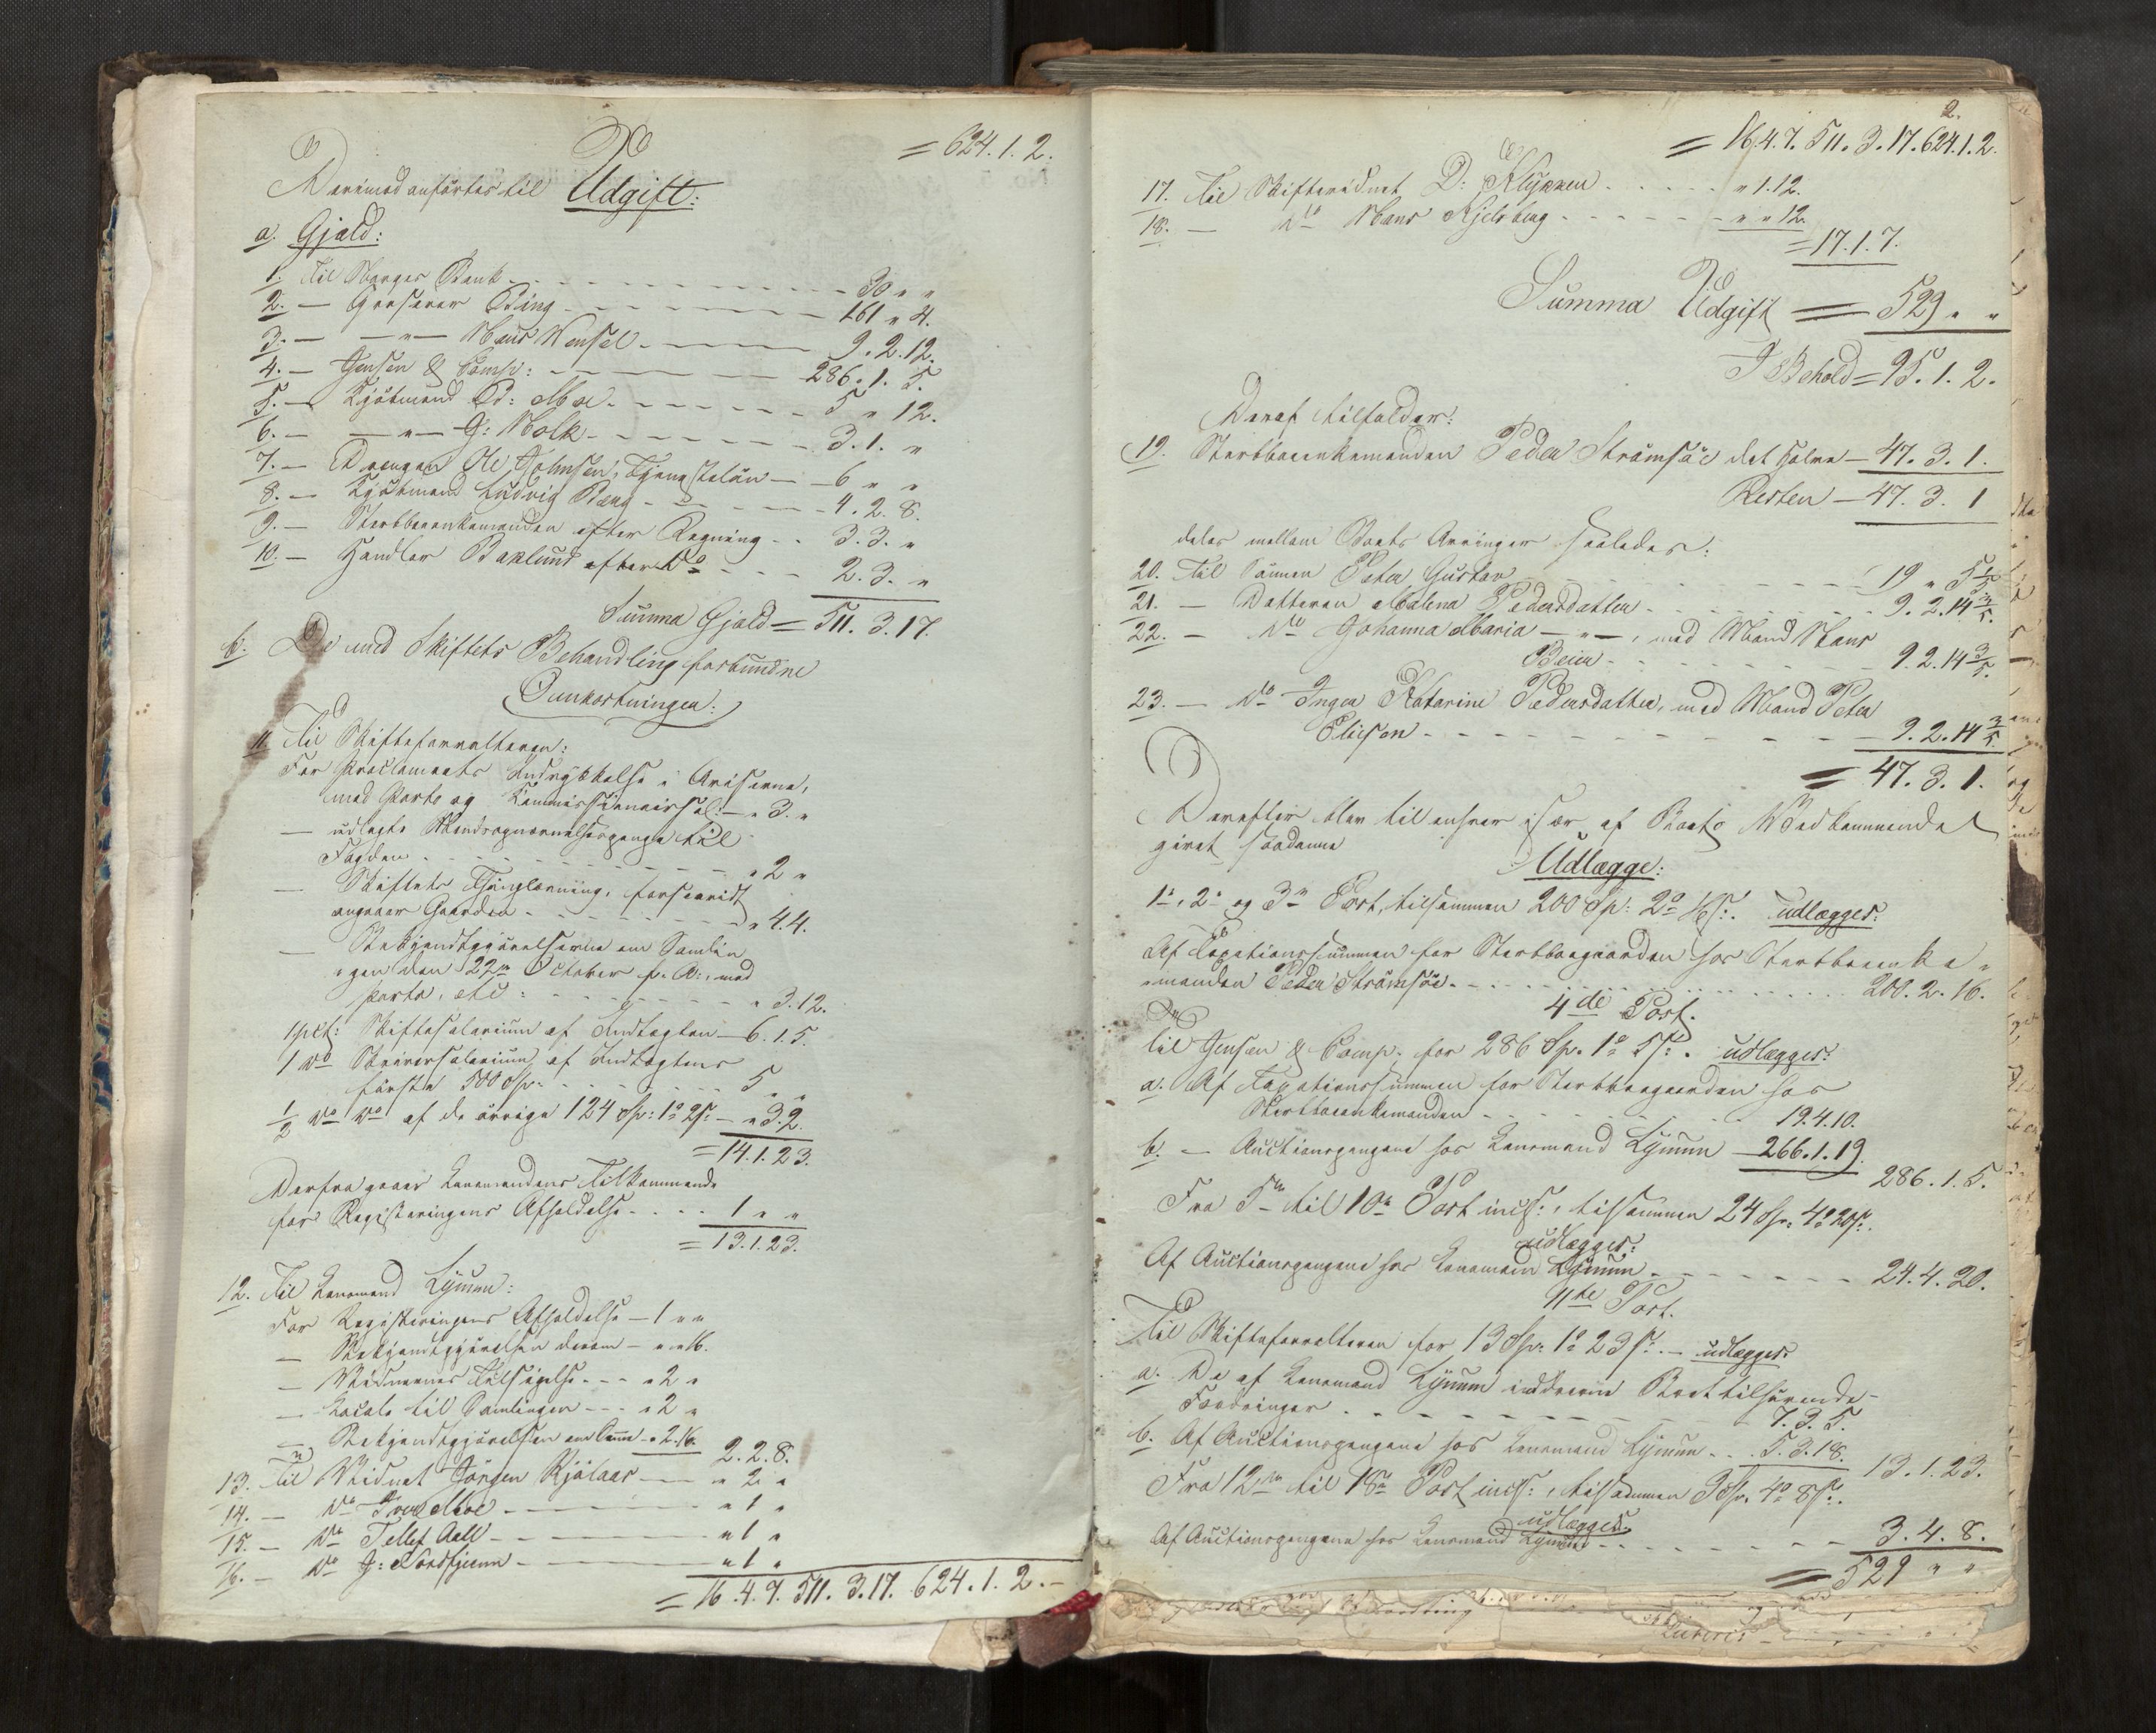 = 624.1.2.
Derimod anførtes til Udgift:
a. Gjæld:
1. Til Norges Bank - - - 30 " "
2. — Grosserer Bing - - - 161 " 4.
3. — — " — Hans Wensel - - - 9.2.12.
4. — Jensen & Comp: - - - 286.1.5.
5. — Kjøbmand P: Moe - - - 5 " 12.
6. — — " — G: Holk - - - 3.1. "
7. — Drengen Ole Johnsen, Tjenesteløn — 6 " "
8. — Kjøbmand Ludvig Bang - - - 4.2.8.
9. — Sterbboenkemanden efter Regning - - 3.3. "
10. — Handler Baklund efter do - - - 2.3. "
Summa Gjæld = 511.3.17.
b. De med Skiftets Behandling forbundne
Omkostninger:
11. Til Skifteforvalteren:
For Proclamaets Indrykkelse i Aviserne,
med Porto og Kommissionairsal: — " 3. "
— udlagte penge til
Fogden - - - " 2 "
— Skiftets Thinglæsning, forsaavidt
angaaer Gaarden - - - " 4.4.
— Bekjendtgjørelserne om Samlin-
gen den 22de October f. A:, med
Porto, etc: - - - " 3.12.
1 pCt: Skiftesalarium af Indtægten — 6.1.5.
1 do Skriversalarium af Indtægtens
første 500 Sp: - - - 5 " "
1/2 do do af de øvrige 124 Sp: 1 o 2 s: — " 3.2.
= 14.1.23.
Derfra gaaer Lensmandens Tilkommende
for Registeringens Afholdelse - - - 1 " "
= 13.1.23.
12. Til Lensmand Lynum:
For Registeringens Afholdelse — 1 " "
— Bekjendtgjørelsen derom — " " 16.
— Vidnernes Tilsigelse - - - " 2 "
— Locale til Samlingen - - - " 2 "
— Bekjendtgjørelsen om Samme - " 2.16. 2.2.8.
13. Til Vidnet Jørgen Kjølaas — " 2 "
14. — do Iver Moe - - - " 1 "
15. — do Tellef Aall - - - " 1 "
16. — do J: Nordfjern - - - " 1 "
= 16.4.7. 511.3.17. 624.1.2. —
2.
= 16.4.7. 511.3.17. 624.1.2.
17. Til Skiftevidnet D: Klykken - - - " 1.12.
18. — do Hans Kjelsberg - - - " " 12.
= 17.1.7.
Summa Udgift = 529 " "
I Behold = 95.1.2.
Deraf tilfalder:
19. Sterbboenkemanden Peder Strømsøe det Halve — 47.3.1.
Resten — 47.3.1
deles mellem Boets Arvinger saaledes:
20. Til Sønnen Peter Gustav - - - 19 " 5 1/5
21. — Datteren Malena Pedersdatter - - - 9.2.14 3/5.
22. — do Johanna Maria — " —, med Mand Hans
Beier - - - 9.2.14 3/5.
23. — do Inger Katarine Pedersdatter, med Mand Peter
Eliesen - - - 9.2.14 3/5.
= 47.3.1.
Derefter blev til enhver især af Boets Vedkommende
givet saadanne
Udlægge:
1te, 2den og 3die Post, tilsammen 200 Sp: 2 o 16 s:. udlægges:
Af Taxationssummen for Sterbbogaarden hos Sterbboenke-
manden Peder Strømsøe - - - 200.2.16.
4de Post.
Til Jensen & Comp. for 286 Sp. 1 o 5 s:. udlægges:
a. Af Taxationssummen for Sterbbogaarden hos
Sterbboenkemanden - - - 19.4.10.
b. — Auctionspengene hos Lensmand Lynum — 266.1.19.
286.1.5.
Fra 5te til 10de Post incl:, tilsammen 24 Sp: 4 o 20 s:.
udlægges:
Af Auctionspengene hos Lensmand Lynum - - - 24.4.20.
11te Post.
Til Skifteforvalteren for 13 Sp: 1 o 23 s:. — udlægges:
a. De af Lensmand Lynum inddrevne Boet tilhørende
Fordringer - - - 7.3.5.
b. Af Auctionspengene hos Lensmand Lynum - - 5.3.18.
13.1.23.
Fra 12te til 18de Post incl:, tilsammen 3 Sp. 4 o 8 s:.
udlægges:
Af Auctionspengene hos Lensmand Lynum - - - 3.4.8.
= 529 " "